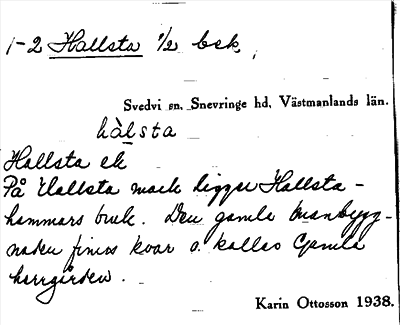 1-2 Hallsta 1/2 bsk,
Svedvi sn. Snevringe hd. Västmanlands län.
hàlsta
Hallsta ek
På Hallsta mark ligger Hallsta-
hammars bruk. Den gamla manbygg-
naden finns kvar o. kallas Gamla
herrgården.
Karin Ottosson 1938.